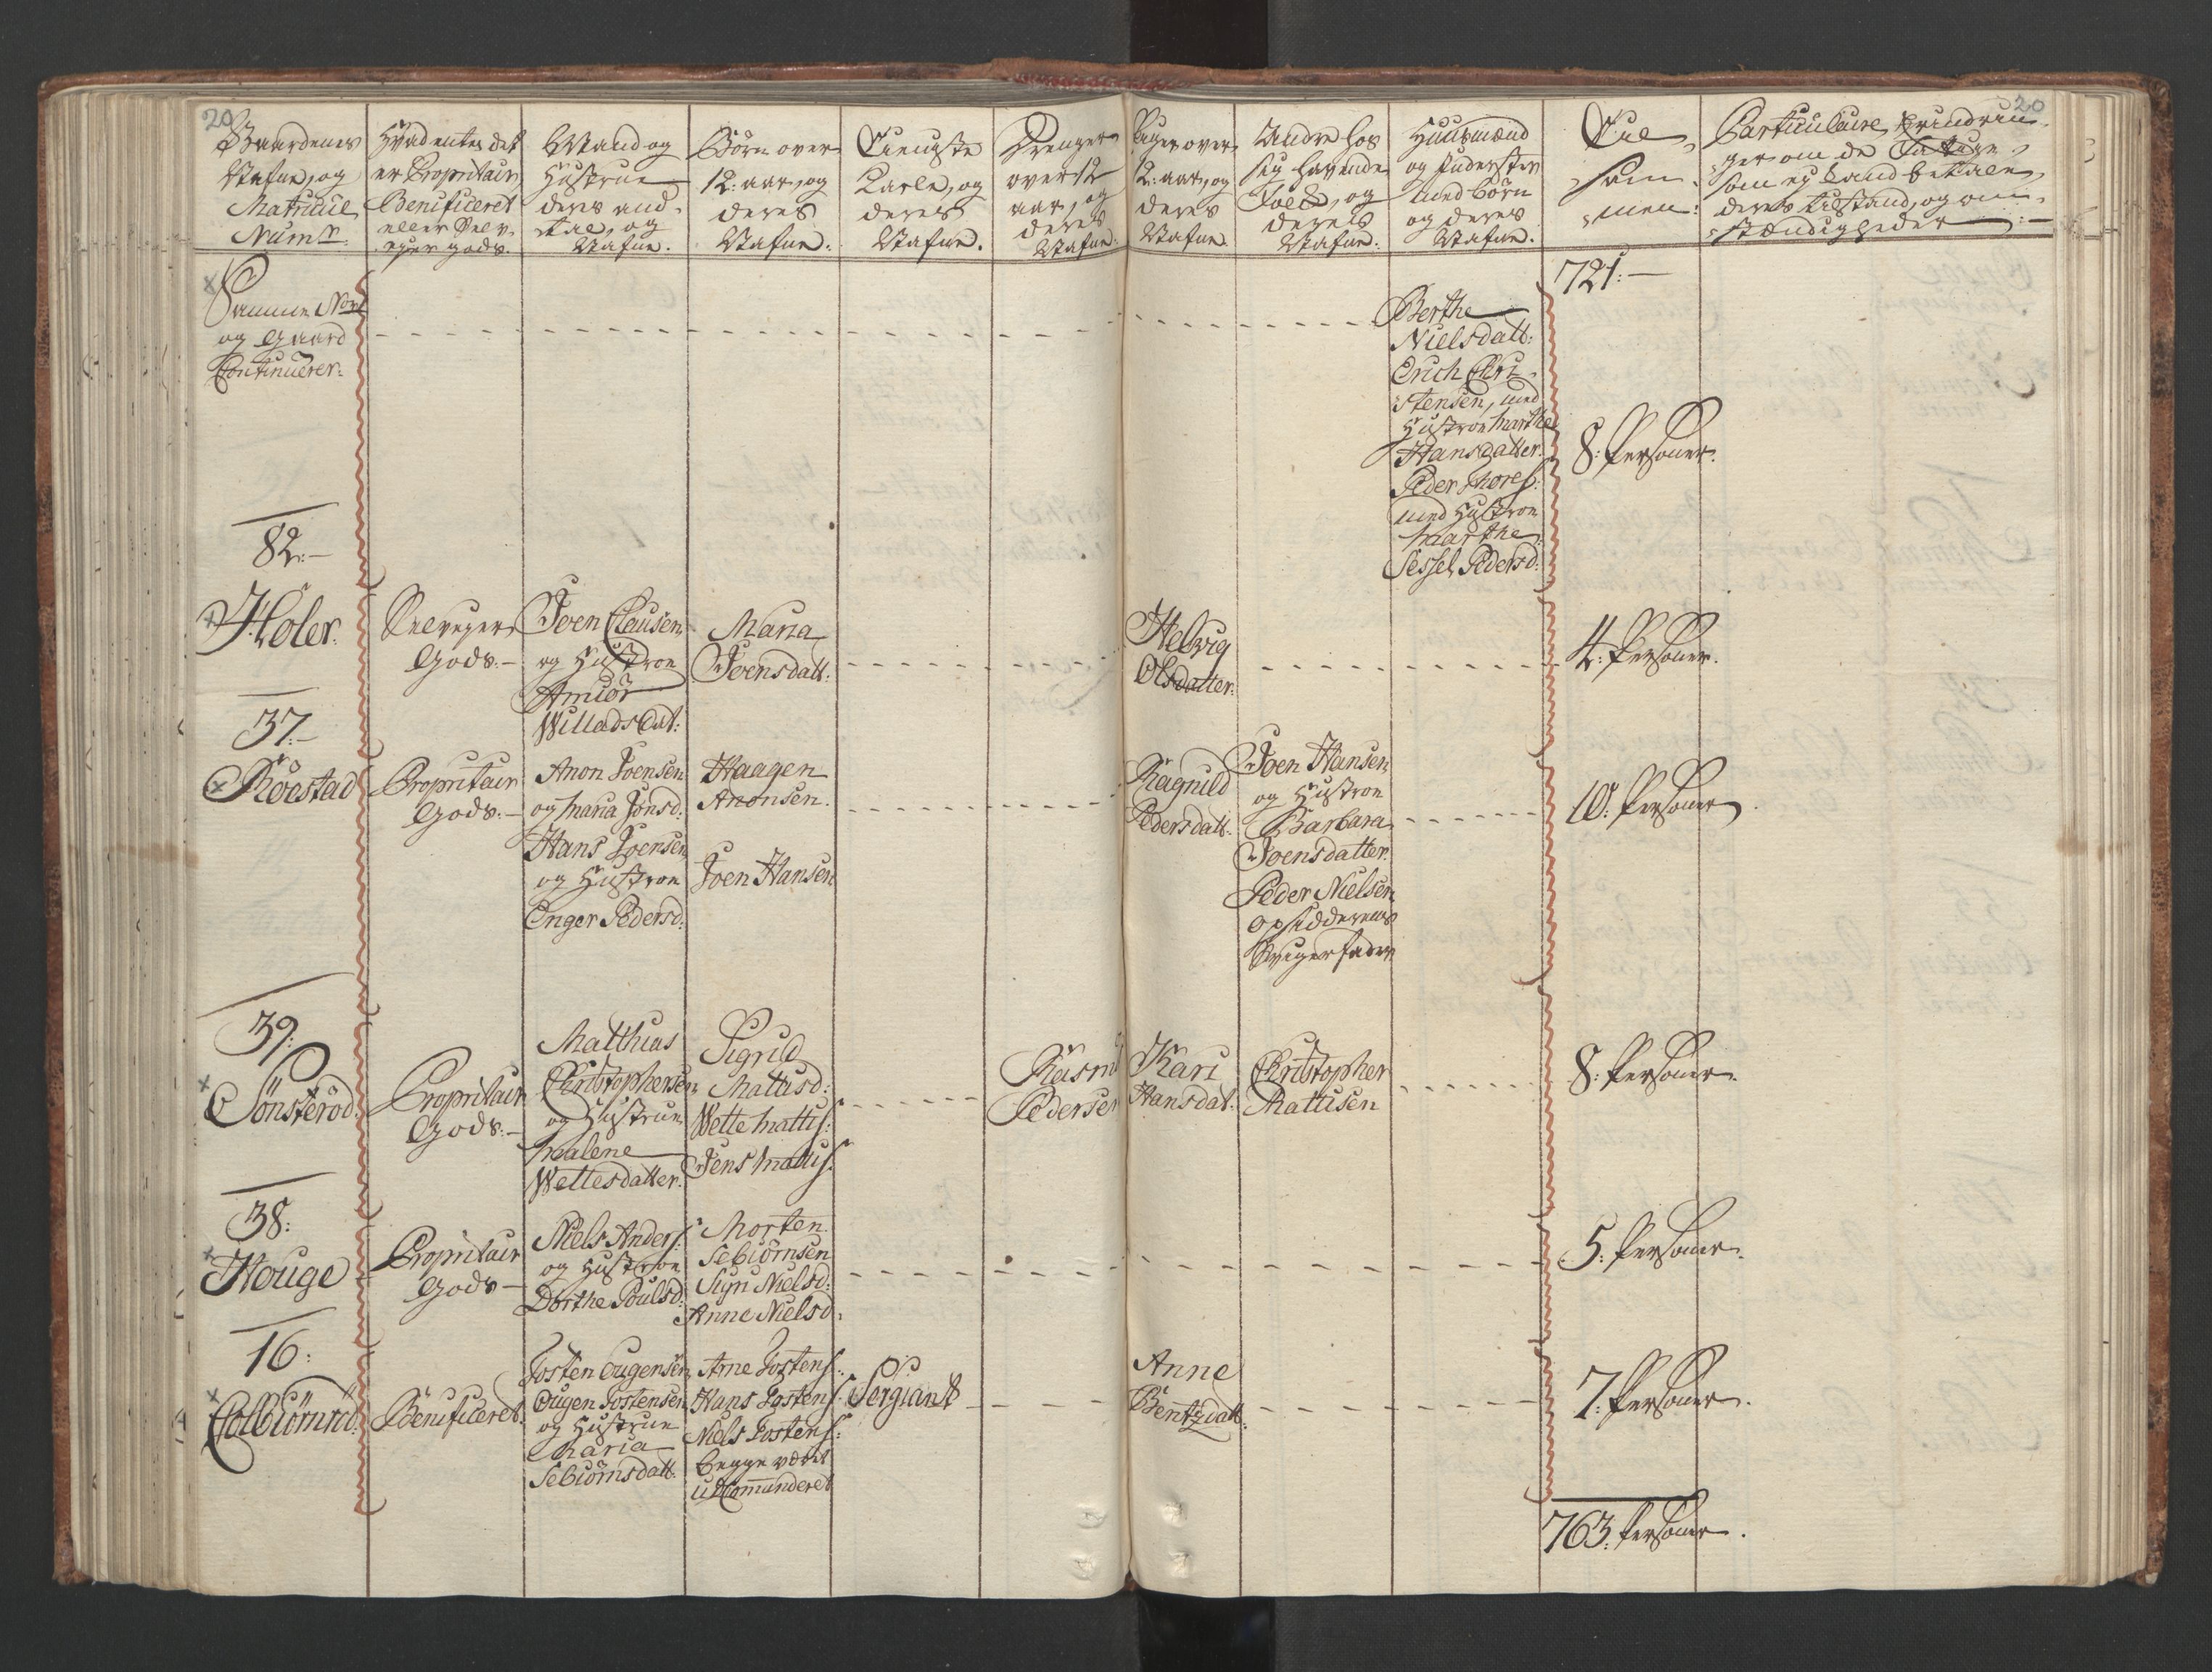 20
20
Gaardenes
Nafne, og
Matricul
Num:
Hvad enten det
er Propritair,
Benificeret
eller Selv-
eyer gods.
Mand og
Hustrue
deris and-
tal, og
Nafne.
Børn over
12: aar, og
deres
Nafne:
Tieniste
Karle, og
deres
Nafne.
Drenger
over 12
aar, og
deres
Nafne:
Piger over
12: aar, og
deres
Nafne.
Andre hos
sig havende
Folck, og
deres
Nafne:
Huusmænd
og Inderster
med børn
og deres
Nafne.
Til
sam-
men:
Particulaire Erindrin-
ger om de
som ej kand betale,
deres tilstand, og om-
stændigheder
721:
Samme No
og Gaard
Continuerer:
Berthe
Nielsdatt:
Erich Chri-
stensen, med
Hustroe Marthe
Hansdatter.
Peder Thores:
med Hustroe
Marthe
Sessel Pedersd:
8: Personer.
82:
Höler:
Selveyer
Gods.
Joen Clausen
og Hustroe
Amiör
Willadsdat:
Maria
Joensdatt:
Helvig
Olsdatter:
4: Personer.
37:
Röestad
Propritair
Gods.
Anon Joensen
og Maria Jonsd:
Hans Joensen
og Hustroe
Enger Pedersd:
Haagen
Anonsen.
Joen Hansen
Ragnild
Pedersdatt:
Joen Hansen
og Hustroe
Barbara
Joensdatter.
Peder Nielsen
opsidderens
Svigerfader
10: Personer.
39:
Sönsteröd
Propritair
Gods.
Matthias
Christophersen
og Hustrue
Malene
Wettesdatter.
Sigrid
Mattisd:
Wette Mattis:
Jens Mattis:
Rasm
Pedersen
Kari
Hansdat:
Christopher
Mattisen
8: Personer.
38:
Houge
Propritair
Gods
Niels Anders:
og Hustroe
Dorthe Poulsd:
Morten
Sebiörnsen
Siyn Nielsd:
Anne Nielsd:
5: Personer.
16:
Colbiörnröd:
Benificeret.
Josten Ougensen
Ougen Jostensen
og Hustrue
Maria
Sebiörnsdatt:
Arne Jostens:
Hans Jostens:
Niels Jostens:
begge været
udCommanderet
Sergiant
Anne
Bentzdatt:
7: Personer.
763: Personer.